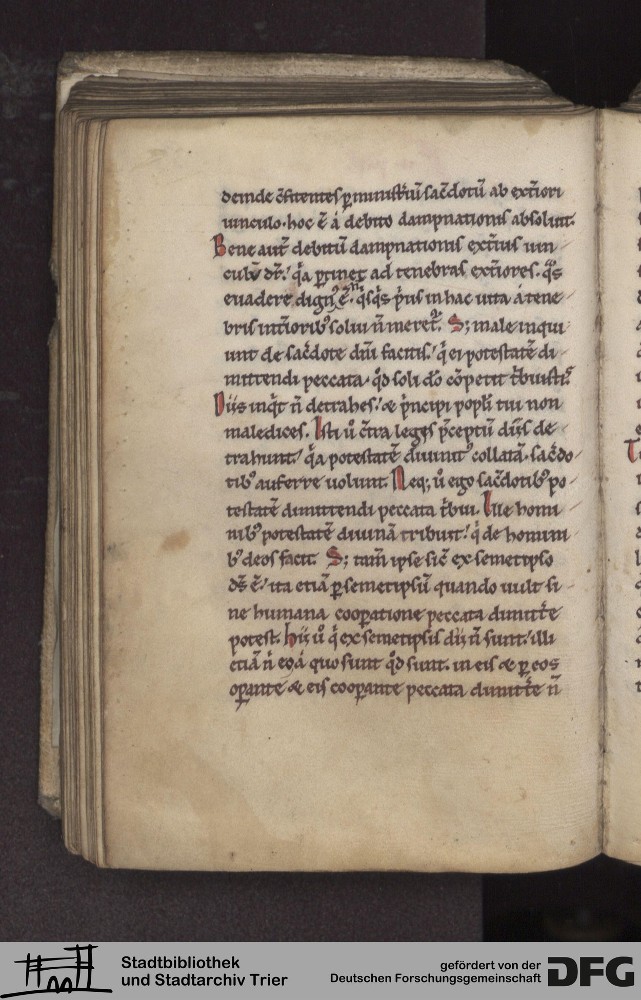 deinde c̄fitentes ꝑ ministꝰiū sac̄dotū ab ext̄iori
uinculo. hoc ē á debito dampnationis absoluit.
Bene aut̄ debitū dampnationis ext̄ius uin-
culū dr̄. q̇a ꝑtinet ad tenebras ext̄iores. q̇s
euadere dignꝰ ē. q̇sq̇s p̓us in hac uita á tene-
bris int̄iorib; solui n̄ meret᷑. S; male inqui-
unt de sac̄dote dm̄ facitis. q̇ ei potestatē di-
mittendi peccata. q̇d soli do̅ cōpetit t̓buistis.
Diis inq̇t n̄ detrahes. & p̓ncipi popl̓i tui non
maledices. Isti u̓ c̄tra leges p̓ceptū diis de-
trahunt. q̇a potestatē diuinitꝰ collatā. sac̄do-
tib; auferre uolunt. Neq; u̓ ego sac̄dotib; po-
testatē dimittendi peccata t̓bui. Ille homi-
nib; potestatē diuinā tribuit. q̇ de homini-
b; deos facit. S; tam̄ ipse sic̄ ex semetipso
ds̄ ē. ita etiā ꝑ semetipsū quando uult si-
ne humana cooꝑatione peccata dimitt̄e
potest. hii u̓ q̇ ex semetipsis dii n̄ sunt. illi
etiā n̄ quo sunt q̇d sunt. in eis & ꝑ eos
oꝑante & eis cooꝑante peccata dimitt̄e n̄
Stadtbibliothek
und Stadtarchiv Trier
gefördert von der
Deutschen Forschungsgemeinschaft
DFG